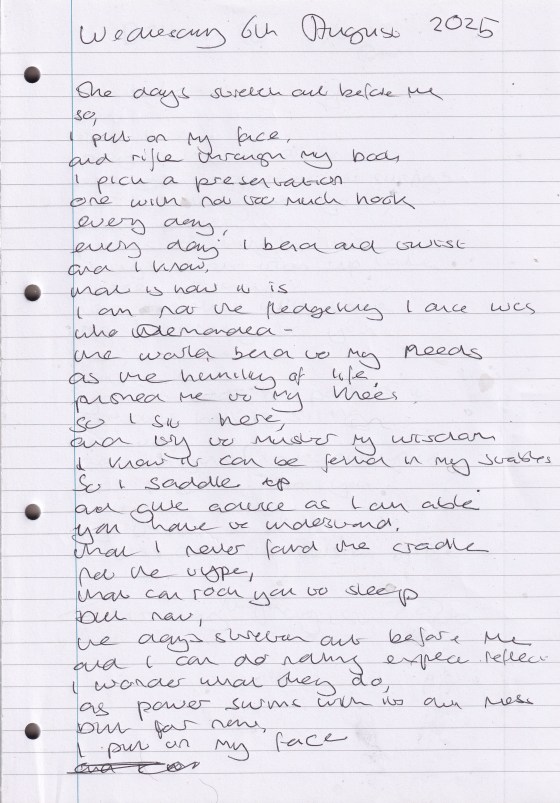 Wednesday 6th August 2025
The days stretch out before me
so,
I put on my face,
and rifle through my book
I pick a presentation
one with not too much hook
every day,
every day I bend and twist
and I know,
that is how it is
I am not the fledgeling I once was
who demanded -
the world bend to my needs
as the humility of life,
pushed me to my knees
So I sit here,
and try to muster my wisdom
I know it can be found in my stables
So I saddle up
and give advice as I am able
you have to understand,
that I never found the cradle
not the type,
that can rock you to sleep
but now,
the days stretch out before me
and I can do nothing except reflect
I wonder what they do,
as power swims with its own mess
but for now,
I put on my face